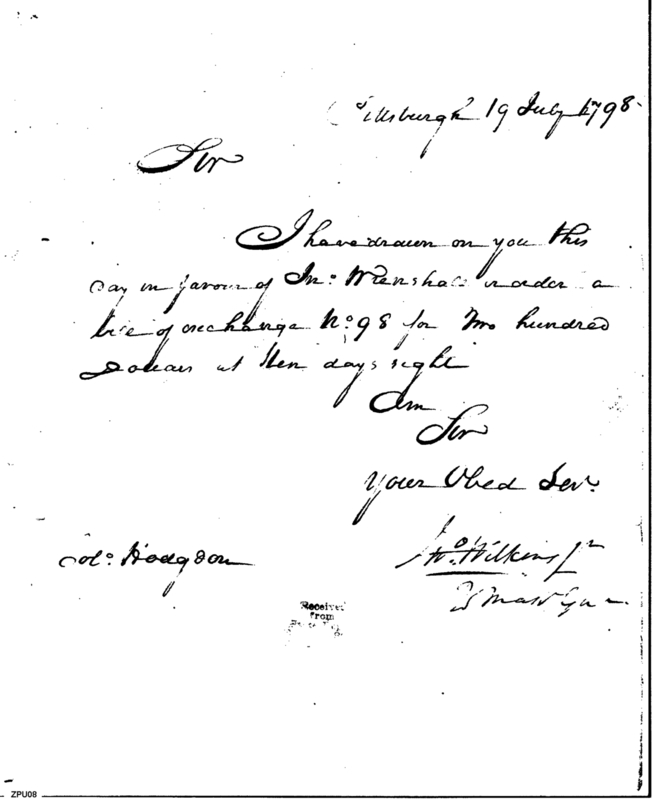 Pittsburgh 19 July 1798
Sir
I have drawn on you this
day in favour of Jno. Wrenshall order a
bill of exchange No. 98 for Two hundred
Dollars at ten days sight
Am
Sir
Your Obed Ser.
Colo. Hodgdon
Jno. Wilkins Jr
Received
from
ZPU08